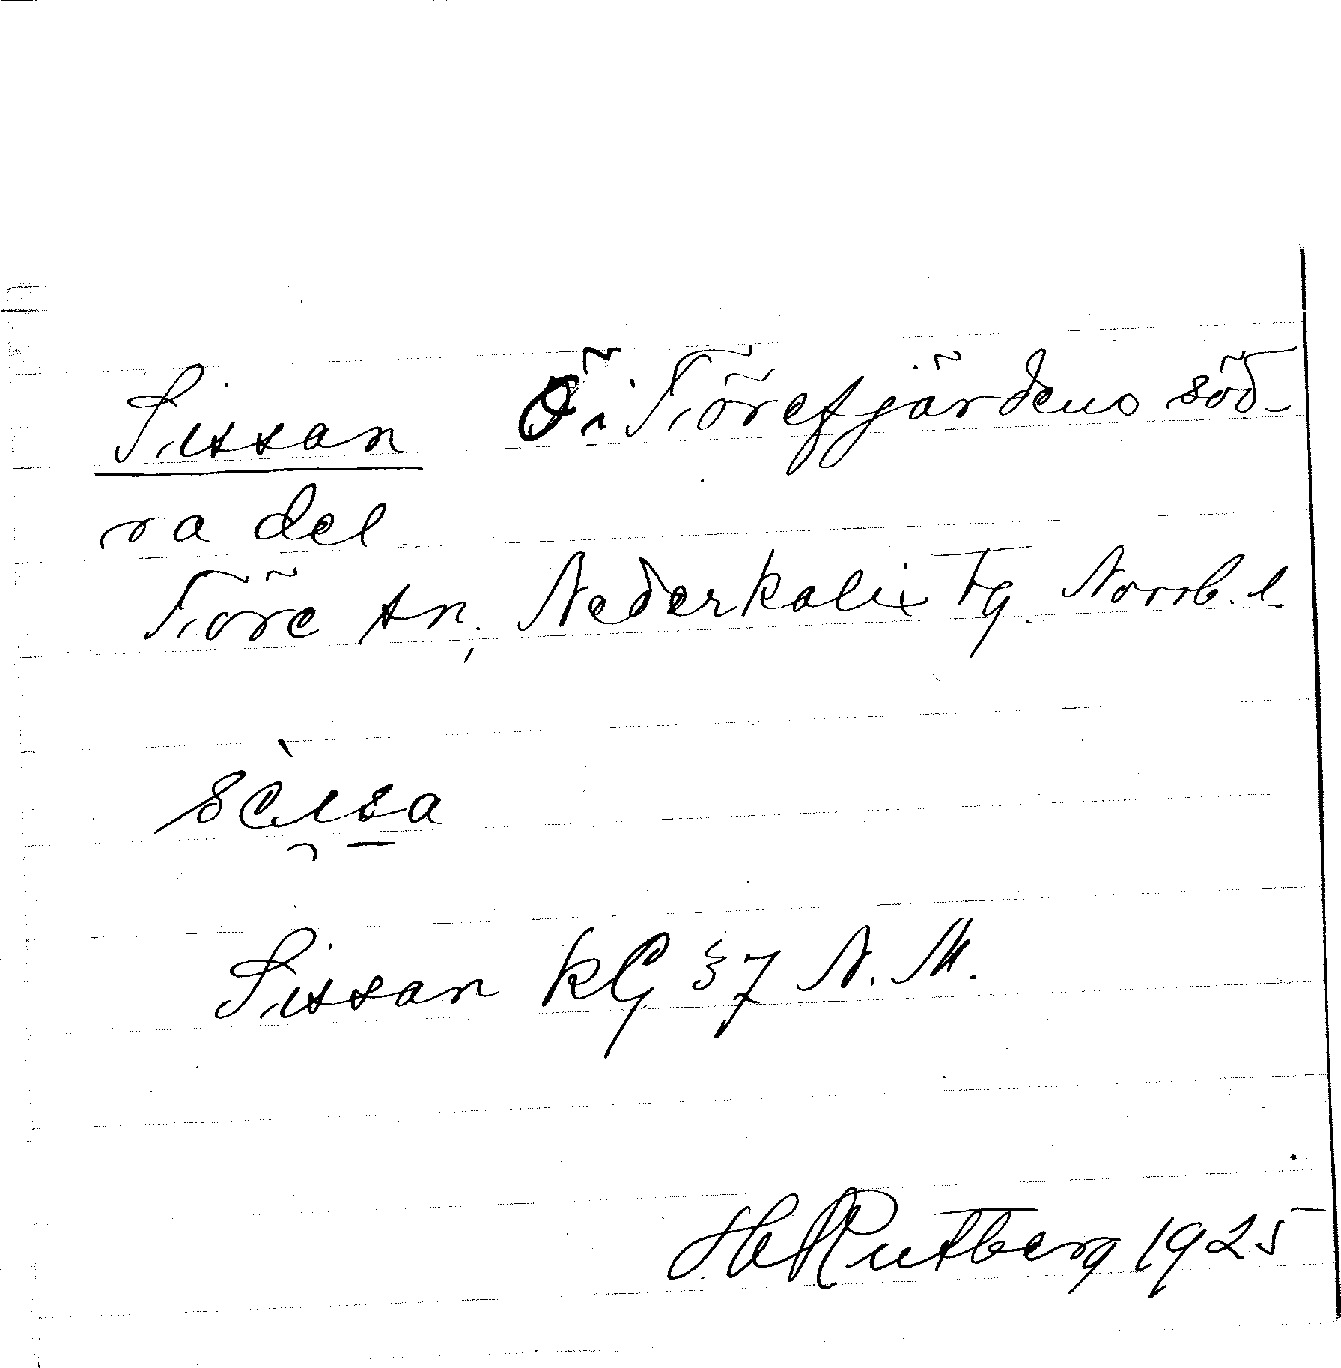 Sissan Ö i Törefjärdens söd-
ra del
Töre sn, Nederkalix tg. Norrb. l.
Sissan kG 37 N. M.
H Rutberg 1925